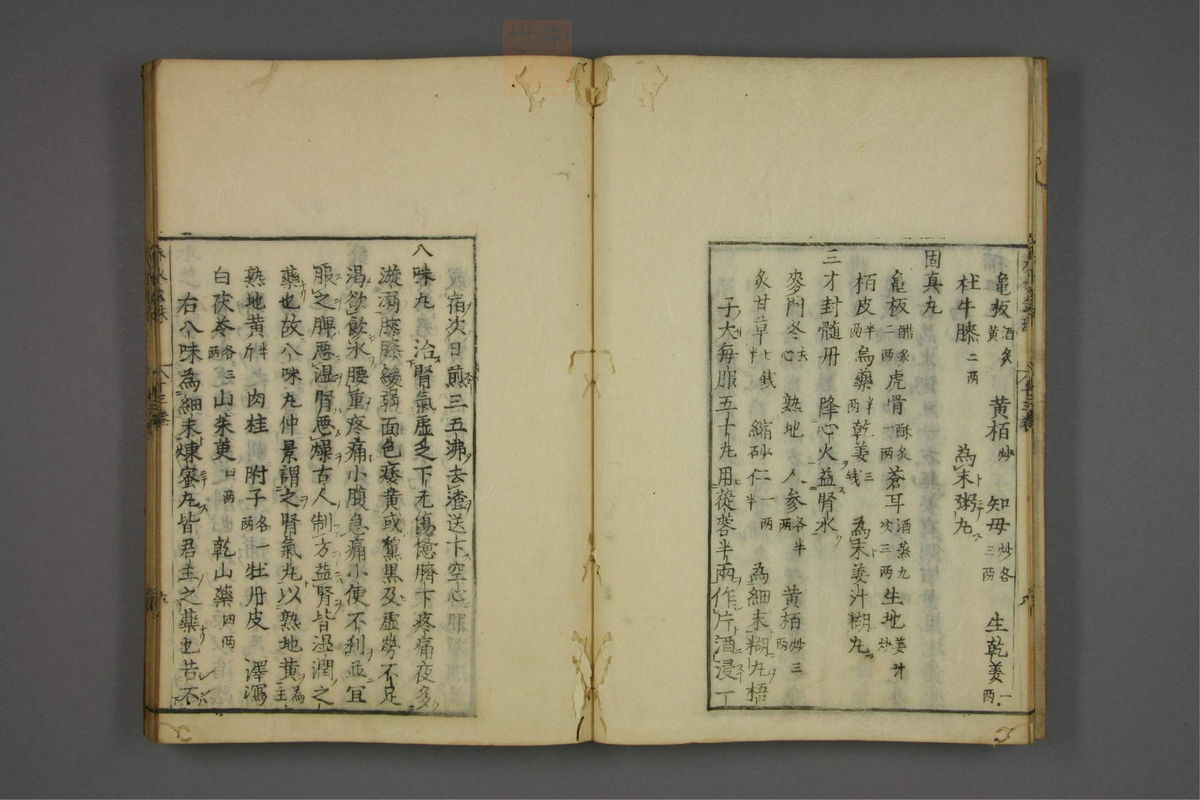 龜板酒炙黃 黄栢炒 知母炒各三两 生乾姜一两
杜牛膝二两 為末粥丸
固真丸
龜板醋炙二两 虎骨酥炙一两 蒼耳酒蒸九次三两 生地姜汁炒
栢皮半两 烏藥半两 乾姜三錢 為末姜汁糊丸
三才封髓丹 降心火益腎水
麥門冬去心 熟地 人參各半两 黄栢炒三两
炙甘草七錢半 縮砂仁一两半 為細末糊丸梧
子大每服五十丸用蓯蓉半兩作片酒浸一
宿次日煎三五沸去渣送下空心服
八味丸 治腎氣虚乏下元傷憊臍下疼痛夜多
漩溺膝緩弱面色痿黄或黧黒及虚勞不足
渴欲飲水腰重疼痛小腹急痛小便不利並宜
服之脾悪湿腎悪燥古人制方益腎皆湿潤之
藥也故八味丸仲景謂之腎氣丸以熟地黄為主
熟地黄半斤 肉桂 附子各一两 牡丹皮 澤瀉
白茯苓各三两 山茱萸四两 乾山藥四两
右八味為細末煉蜜丸皆君主之藥也若不